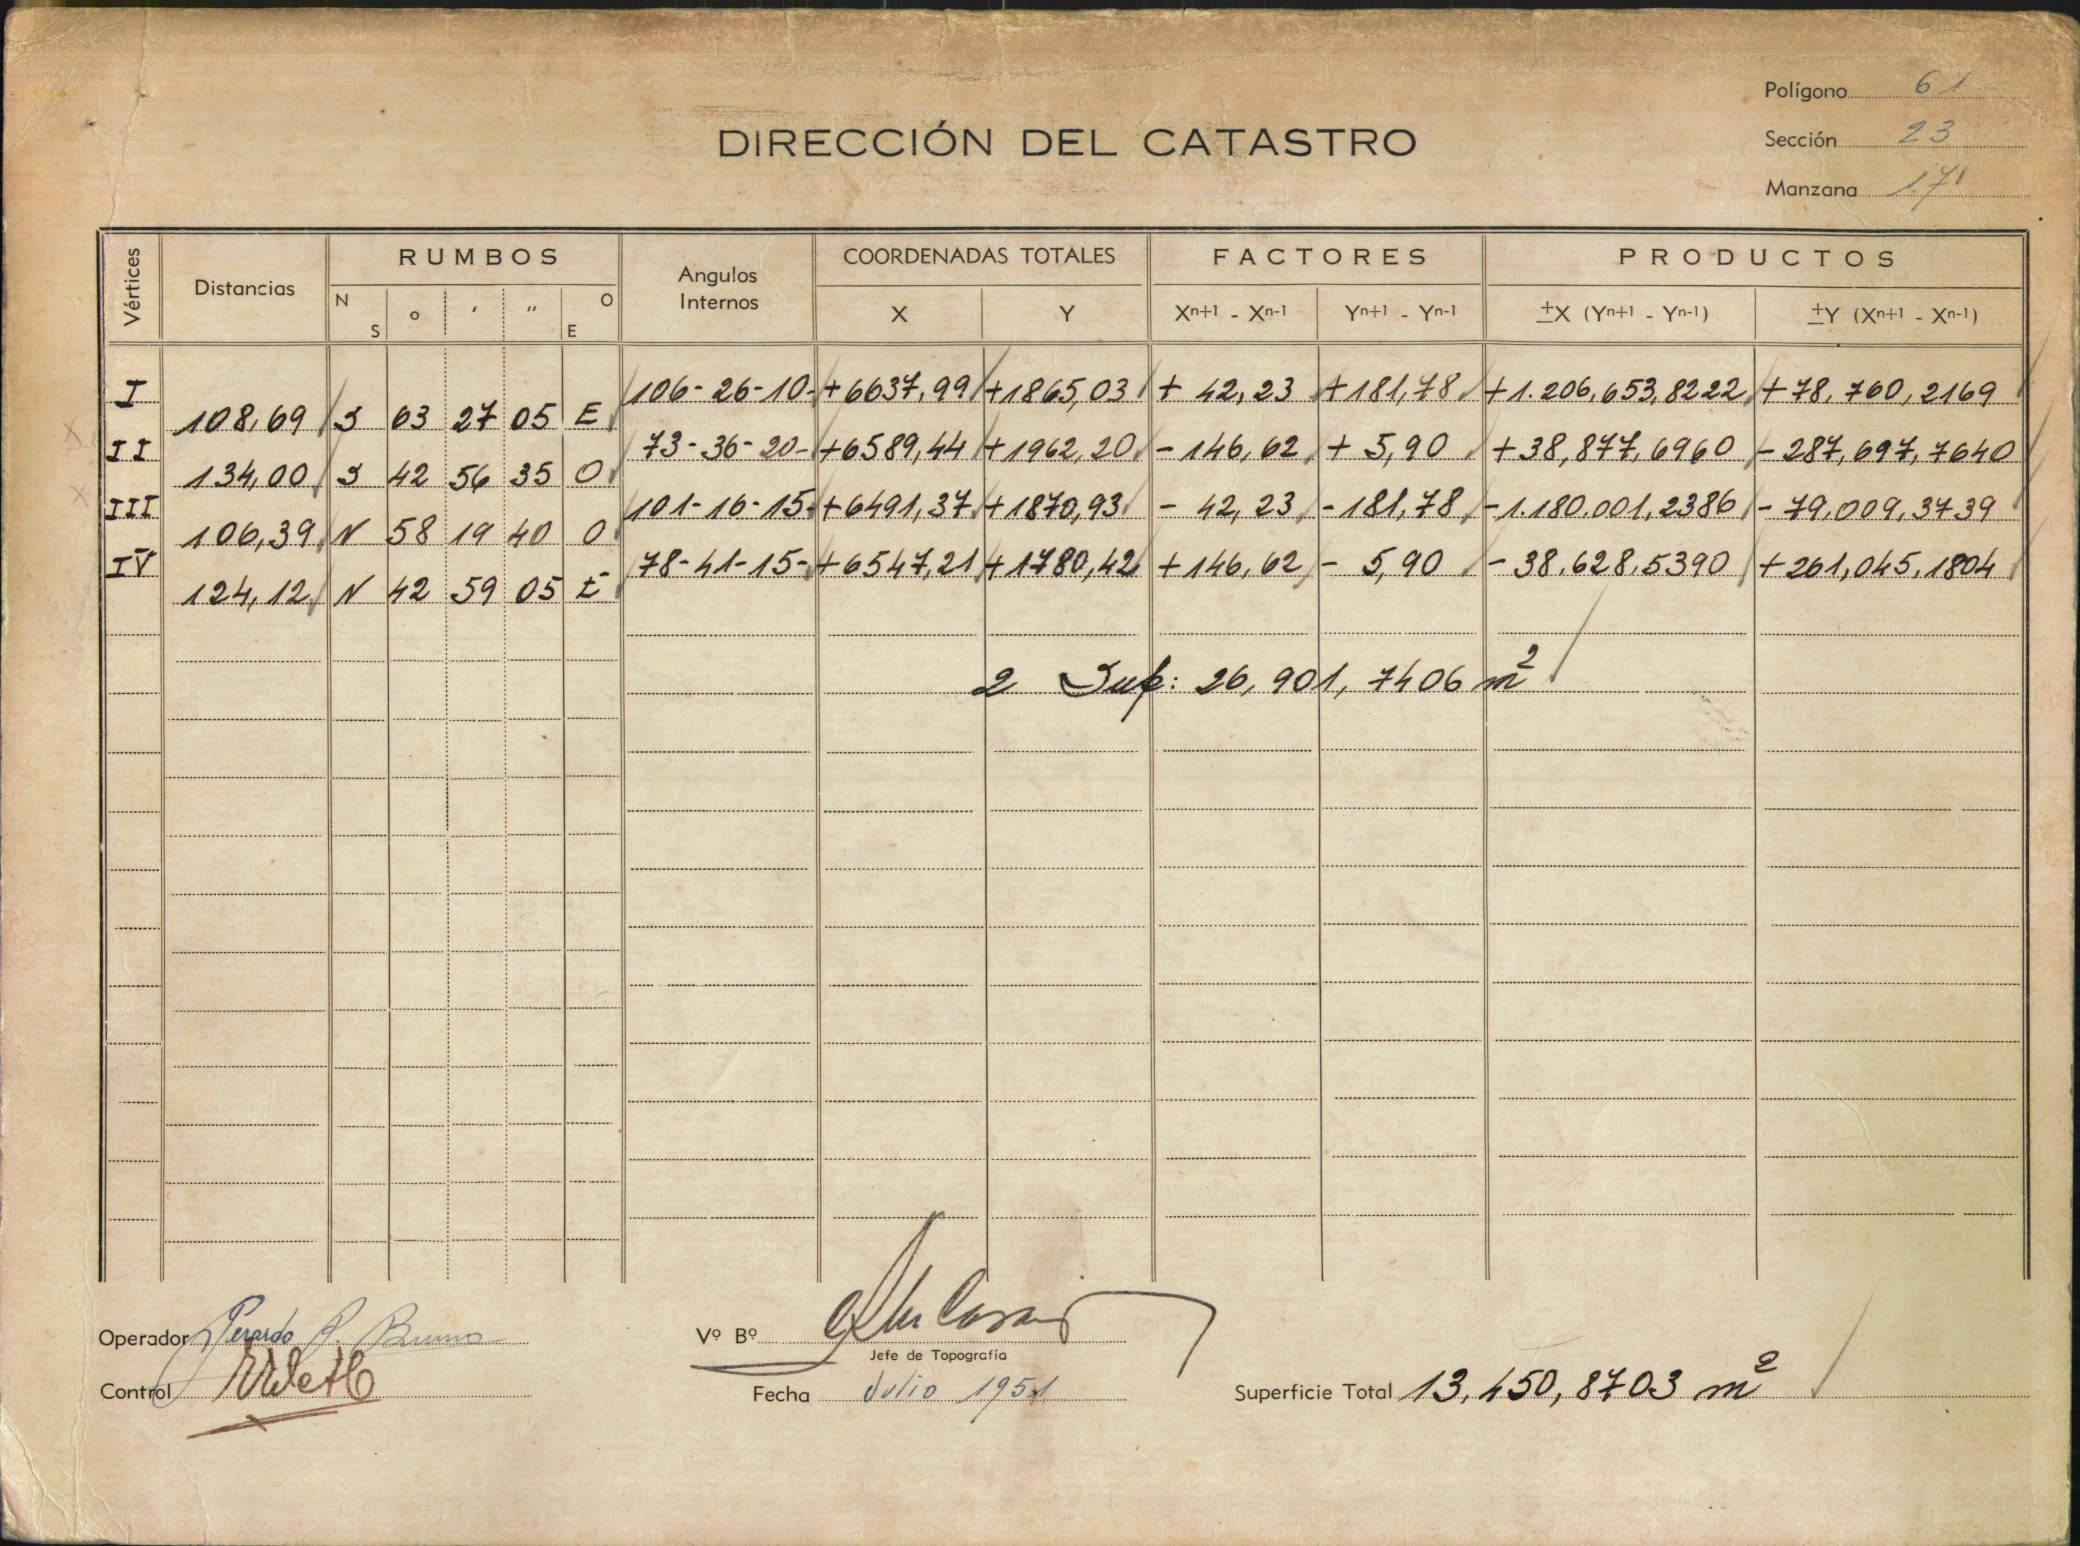 Polígono 61
DIRECCIÓN DEL CATASTRO
Sección 23
Manzana 171
Vértices Distancias RUMBOS Angulos Internos COORDENADAS TOTALES FACTORES PRODUCTOS
N S ° ' " O E X Y Xⁿ⁺¹ - Xⁿ⁻¹ Yⁿ⁺¹ - Yⁿ⁻¹ ±X (Yⁿ⁺¹ - Yⁿ⁻¹) ±Y (Xⁿ⁺¹ - Xⁿ⁻¹)
I 106-26-10- +6637,99 +1865,03 + 42,23 +181,78 +1.206,653,8222 +78,760,2169
108,69 S 63 27 05 E
II 73-36-20- +6589,44 +1962,20 -146,62 + 5,90 +38,877,6960 -287,697,7640
134,00 S 42 56 35 O
III 101-16-15- +6491,37 +1870,93 - 42,23 -181,78 -1.180.001,2386 -79,009,3739
106,39 N 58 19 40 O
IV 78-41-15- +6547,21 +1780,42 +146,62 - 5,90 -38.628,5390 +261,045,1804
124,12 N 42 59 05 E
2 Sup: 26,901,7406 m²
Operador Gerardo
Vº Bº
Jefe de Topografía
Control
Fecha Julio 1951
Superficie Total 13,450,8703 m²